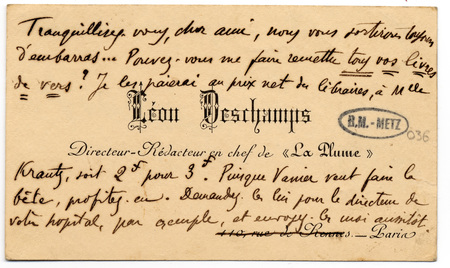 Tranquillisez-vous, cher ami, nous vous sortirons toujours
d'embarras... Pouvez-vous me faire remettre tous vos livres
de vers? Je les paierai au prix net du libraires, à Melle
Léon Deschamps
R.M.-METZ
036
Directeur-Rédacteur en chef de "La Plume"
Krantz, soit 2f pour 3f. Puisque Vanier veut faire la
bête, profitez-en. Demandez-les lui pour le directeur de
votre hopital, par exemple, et envoyez-les moi aussitôt.
110, rue de Rennes. — Paris